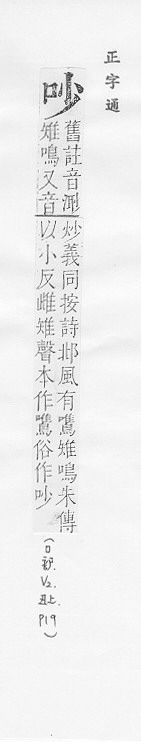 正字通
吵
舊註音漅炒義同按詩邶風有鷕雉鳴朱傳
雉鳴又音以小反雌雉聲本作鷕俗作吵
(口部.
V2.
丑上.
P19)